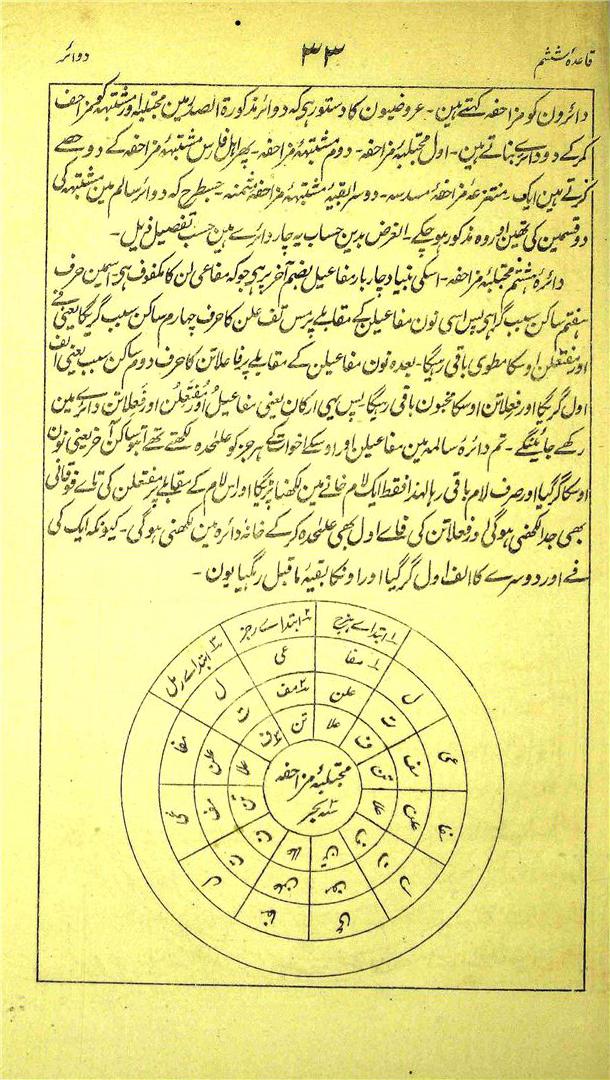 قاعدۂ ششم
۳۳
دوائر
دائرون کو مزاحفہ کہتے ہین ۔ عروضیون کا دستور ہی کہ دوائر مذکورۃ الصدر مین مجتلبہ اور مشتبہہ کو مزاحف
کر کے دو دائرے بناتے ہین ۔ اول مجتلبۂ مزاحفہ ۔ دوم مشتبہۂ مزاحفہ ۔ پھر اہل فارس مشتبہۂ مزاحفہ کے دو حصے
کرتے ہین ایک منتزعۂ مزاحفۂ مسدسہ ۔ دوسرا بقیۂ مشتبہۂ مزاحفۂ مثمنہ ۔ جسطرح کہ دوائر سالم مین مشتبہہ کی
دو قسمین کی تھین اور وہ مذکور ہو چکے ۔ الغرض بدین حساب یہ چار دائرے ہین حسب تفصیل ذیل ۔
دائرۂ ہشتم مجتلبۂ مزاحفہ ۔ اسکی بنیاد چار بار مفاعیل بضم آخر پر ہی جو کہ مفاعی لن کا مکفوف ہی اسمین حرف
ہفتم ساکن سبب گرا ہی پس اسی نون مفاعیلن کے مقابلے پر مس تف علن کا حرف چہارم ساکن سبب گریگا یعنی فے
اور مفتعلن اوسکا مطوی باقی رہیگا ۔ بعدہ نون مفاعیلن کے مقابلے پر فاعلاتن کا حرف دوم ساکن سبب یعنی الف
اول گریگا اور فعلاتن اوسکا مخبون باقی رہیگا ۔ پس یہی ارکان یعنی مفاعیلُ اور مُفتَعِلُن اور فَعِلاتن دائرے مین
رکھے جائینگے ۔ تم دائرۂ سالمہ مین مفاعیلن اور اوسکے اخوات کے ہر جز کو علٰحدہ لکھتے تھے اب تو ساکن آخر یعنی نون
اوسکا گر گیا اور صرف لام باقی رہا لہذا فقط ایک لام خانے مین لکھنا پڑیگا اور اس لام کے مقابلے پر مفتعلن کی تاے فوقانی
بھی جدا لکھنی ہوگی اور فعلاتن کی فاے اول بھی علٰحدہ کر کے خانۂ دائرہ مین لکھنی ہوگی ۔ کیونکہ ایک کی
فے اور دوسرے کا الف اول گر گیا اور اونکا بقیۂ ما قبل رہگیا یون ۔
۱ ابتداے ہزج
۲ ابتداے رجز
۳ ابتداے رمل
۱ مفا
عی
ل
مفا
عی
ل
مفا
عی
ل
مفا
عی
ل
علن
۲ مف
ت
علن
مف
ت
علن
مف
ت
علن
مف
ت
علا
تن
۳ ف
علا
تن
ف
علا
تن
ف
علا
تن
ف
مجتلبۂ مزاحفہ
۳ بحر